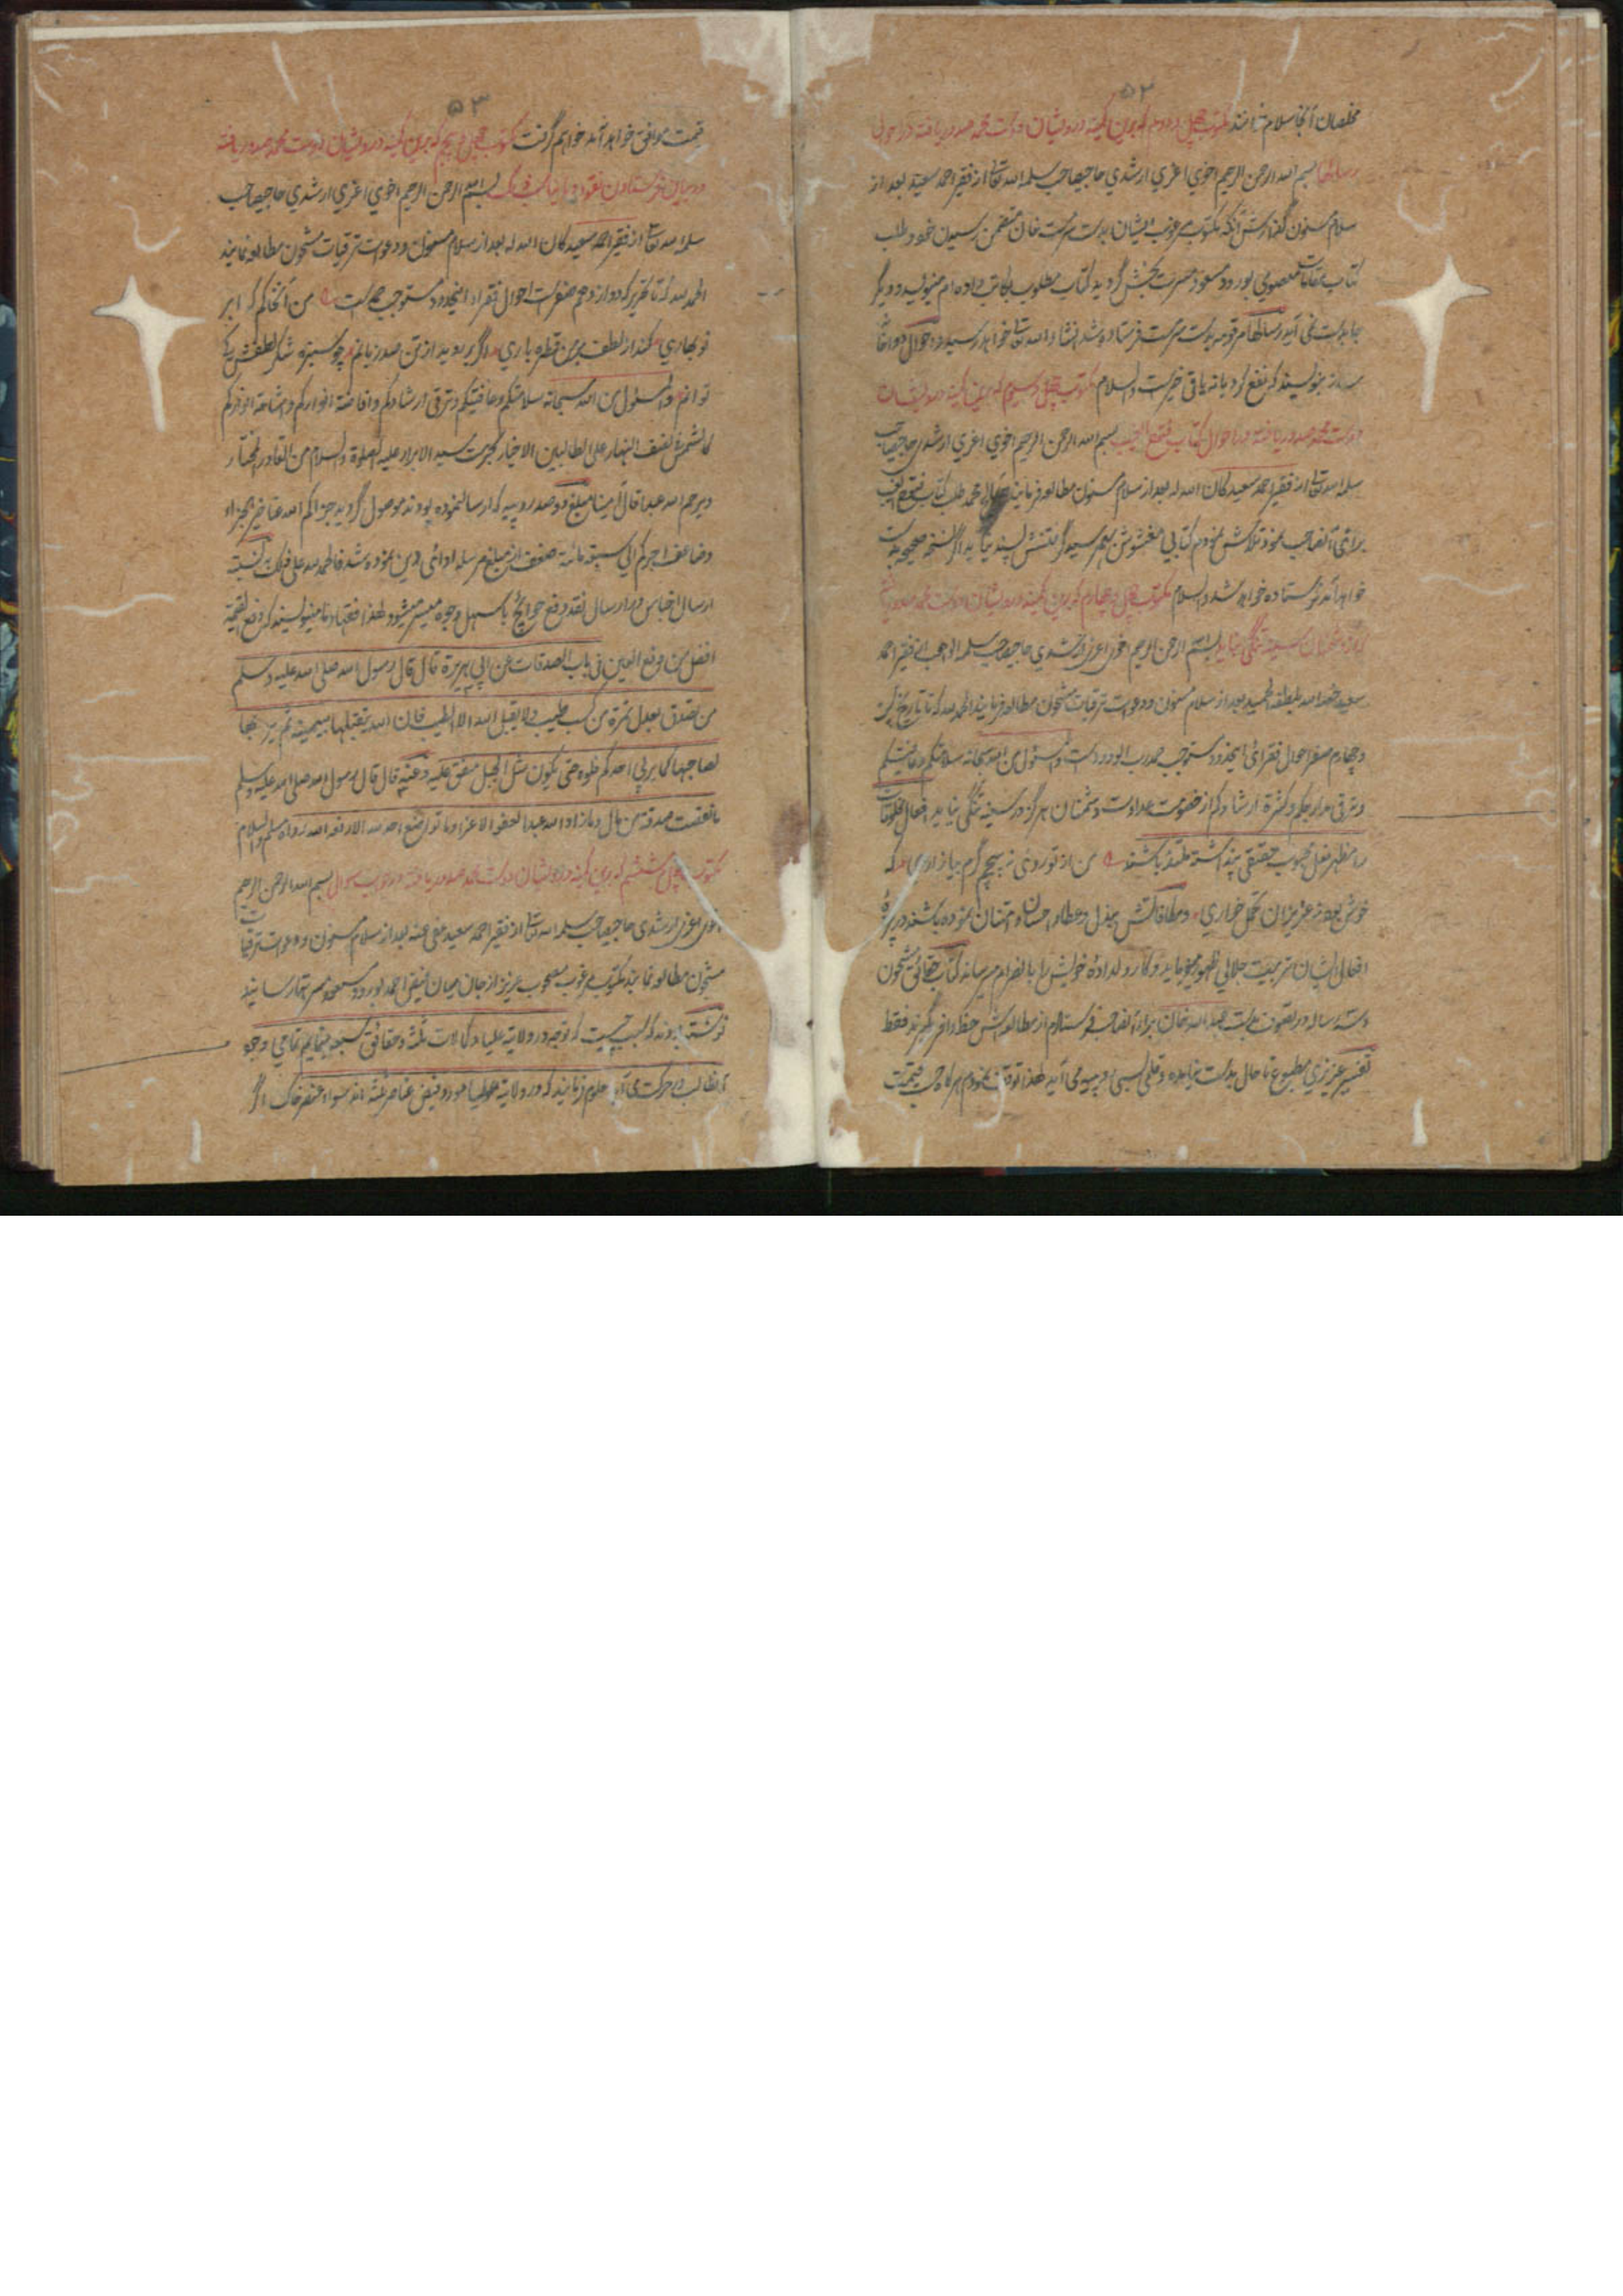 ۵۲
مخلصان آنجا سلام خوانند مکتوب چهل و دوم که بدین کمینه درویشان دوست محمد صدور یافته در احوال
رسالها بسم الله الرحمن الرحیم اخوی اعزی ارشدی حاجیصاحب سلمه الله تعالی از فقیر احمد سعید بعد از
سلام مسنون گذارش آنکه مکتوب مرغوب ایشان بدست خان متضمن رسیدن خود و طلب
کتاب مقامات معصومی بورود مسعود مسرت بخش گردید کتاب مطلوب بکاتب داده ام مینویسد و دیگر
جا بدست نمی آید و رسالها مرقومه بدست فرستاده شد انشاء الله تعالی خواهد رسید و احوال دوا
بنویسند که نفع کرد یا نه باقی خیریت والسلام مکتوب چهل و سیوم که بدین کمینه درویشان
دوست محمد صدور یافته در احوال کتاب فتوح الغیب بسم الله الرحمن الرحیم اخوی اعزی ارشدی حاجیصاحب
سلمه الله تعالی از فقیر احمد سعید کان الله له بعد از سلام مسنون مطالعه فرمایند محمد طلب کتاب فتوح الغیب
برای آنصاحب نمود تلاش نمودم کتابی مغشوش بهم رسید مگر متنش پسند نیامد اگر نسخه صحیحه بدست
خواهد آمد فرستاده خواهد شد والسلام مکتوب چهل و چهارم که بدین کمینه درویشان دوست محمد صدور یافته
که از دشمنان سینه تنگی ننمایند بسم الله الرحمن الرحیم اخوی اعزی ارشدی حاجیصاحب سلمه الواهب از فقیر احمد
سعید بعد از سلام مسنون و دعوات ترقیات مشحون مطالعه فرمایند الحمد لله که تا تاریخ بست
و چهارم صفر احوال فقرای اینحدود مستوجب حمد رب الودود است والمسئول من الله سبحانه سلامتکم وعافیتکم
وترقی مدارجکم وکثرة ارشادکم از خصومت و عداوت دشمنان هرگز در سینه تنگی نیابد افعال مخلوقات
را مظهر فعل محبوب حقیقی پنداشته متلذذ باشند من از تو روی نه پیچم گرم بیازاری که
خوش بود ز عزیزان تحمل خواری و مکافاتش ببذل و عطا و احسان و امتنان نموده باشند در پردهٔ
افعال ایشان تربیت جلالی ظهور میفرماید و کار دلدادهٔ خویش را بانصرام میرساند کتاب حقائق مشحون
رساله در تصوف بدست عبد الله خان برای آنصاحب فرستادم از مطالعه اش حظ وافر گیرند فقط
تفسیر عزیزی مطبوع تا حال بدست نیامده و قلمی بسی روپیه می آید لهذا توقف نمودم هرگاه بقیمت
۵۳
قیمت موافق خواهد آمد خواهم گرفت مکتوب چهل و پنجم که بدین کمینه درویشان دوست محمد صدور یافته
در بیان فرستادن نقود بسم الله الرحمن الرحیم اخوی اعزی ارشدی حاجیصاحب
سلمه الله تعالی از فقیر احمد سعید کان الله له بعد از سلام مسنون و دعوات ترقیات مشحون مطالعه نمایند
الحمد لله که تا تحریر که دوازدهم صفر است احوال فقراء اینحدود مستوجب حمد است من آنخاکم که ابر
نوبهاری کند از لطف بر من قطره باری اگر بر روید از تن صد زبانم چو سبزه شکر لطفش کی
توانم والمسئول من الله سبحانه سلامتکم وعافیتکم وترقی ارشادکم وافاضة انوارکم واشاعة انوارکم
کالشمس فی نصف النهار علی الطالبین الاخیار بحرمت سید الابرار علیه الصلوة والسلام من القادر المختار
ویرحم الله عبدا قال آمینا مبلغ دوصد روپیه که ارسال نموده بودند موصول گردید جزاکم الله عنا خیر الجزاء
وضاعف اجرکم الی سبعمائة ضعف از مبلغ مرسله ادائی دین نموده شد فالحمد لله علی ذلک نسبت
ارسال اجناس در ارسال نقد رفع حوائج باسهل وجوه میسر میشود لهذا فقها مینویسند که دفع القیمة
افضل من دفع العین فی باب الصدقات عن ابی هریرة قال قال رسول الله صلی الله علیه وسلم
من تصدق بعدل تمرة من کسب طیب ولا یقبل الله الا الطیب فان الله یتقبلها بیمینه ثم یربیها
لصاحبها کما یربی احدکم فلوه حتی یکون مثل الجبل متفق علیه وعنه قال قال رسول الله صلی الله علیه وسلم
ما نقصت صدقة من مال وما زاد الله عبدا بعفو الا عزا وما تواضع احد لله الا رفعه الله رواه مسلم والسلام
مکتوب چهل و ششم که بدین کمینه درویشان دوست محمد صدور یافته در جواب سوال بسم الله الرحمن الرحیم
اخوی اعزی ارشدی حاجیصاحب سلمه الله تعالی از فقیر احمد سعید عفی عنه بعد از سلام مسنون و دعوات ترقیات
مشحون مطالعه نمایند مکتوب مرغوب مصحوب عزیز از جان میان فیض احمد بورود مسعود مسرتها رسانید
نوشته بودند که سبب چیست که توجه در ولایة علیا و کمالات ثلثه و حقائق سبعه مینمایم تمامی وجود
طالب بحرکت می آید معلوم فرمایند که در ولایة علیا مورد فیض عناصر ثلثه اند سواء عنصر خاک اگر